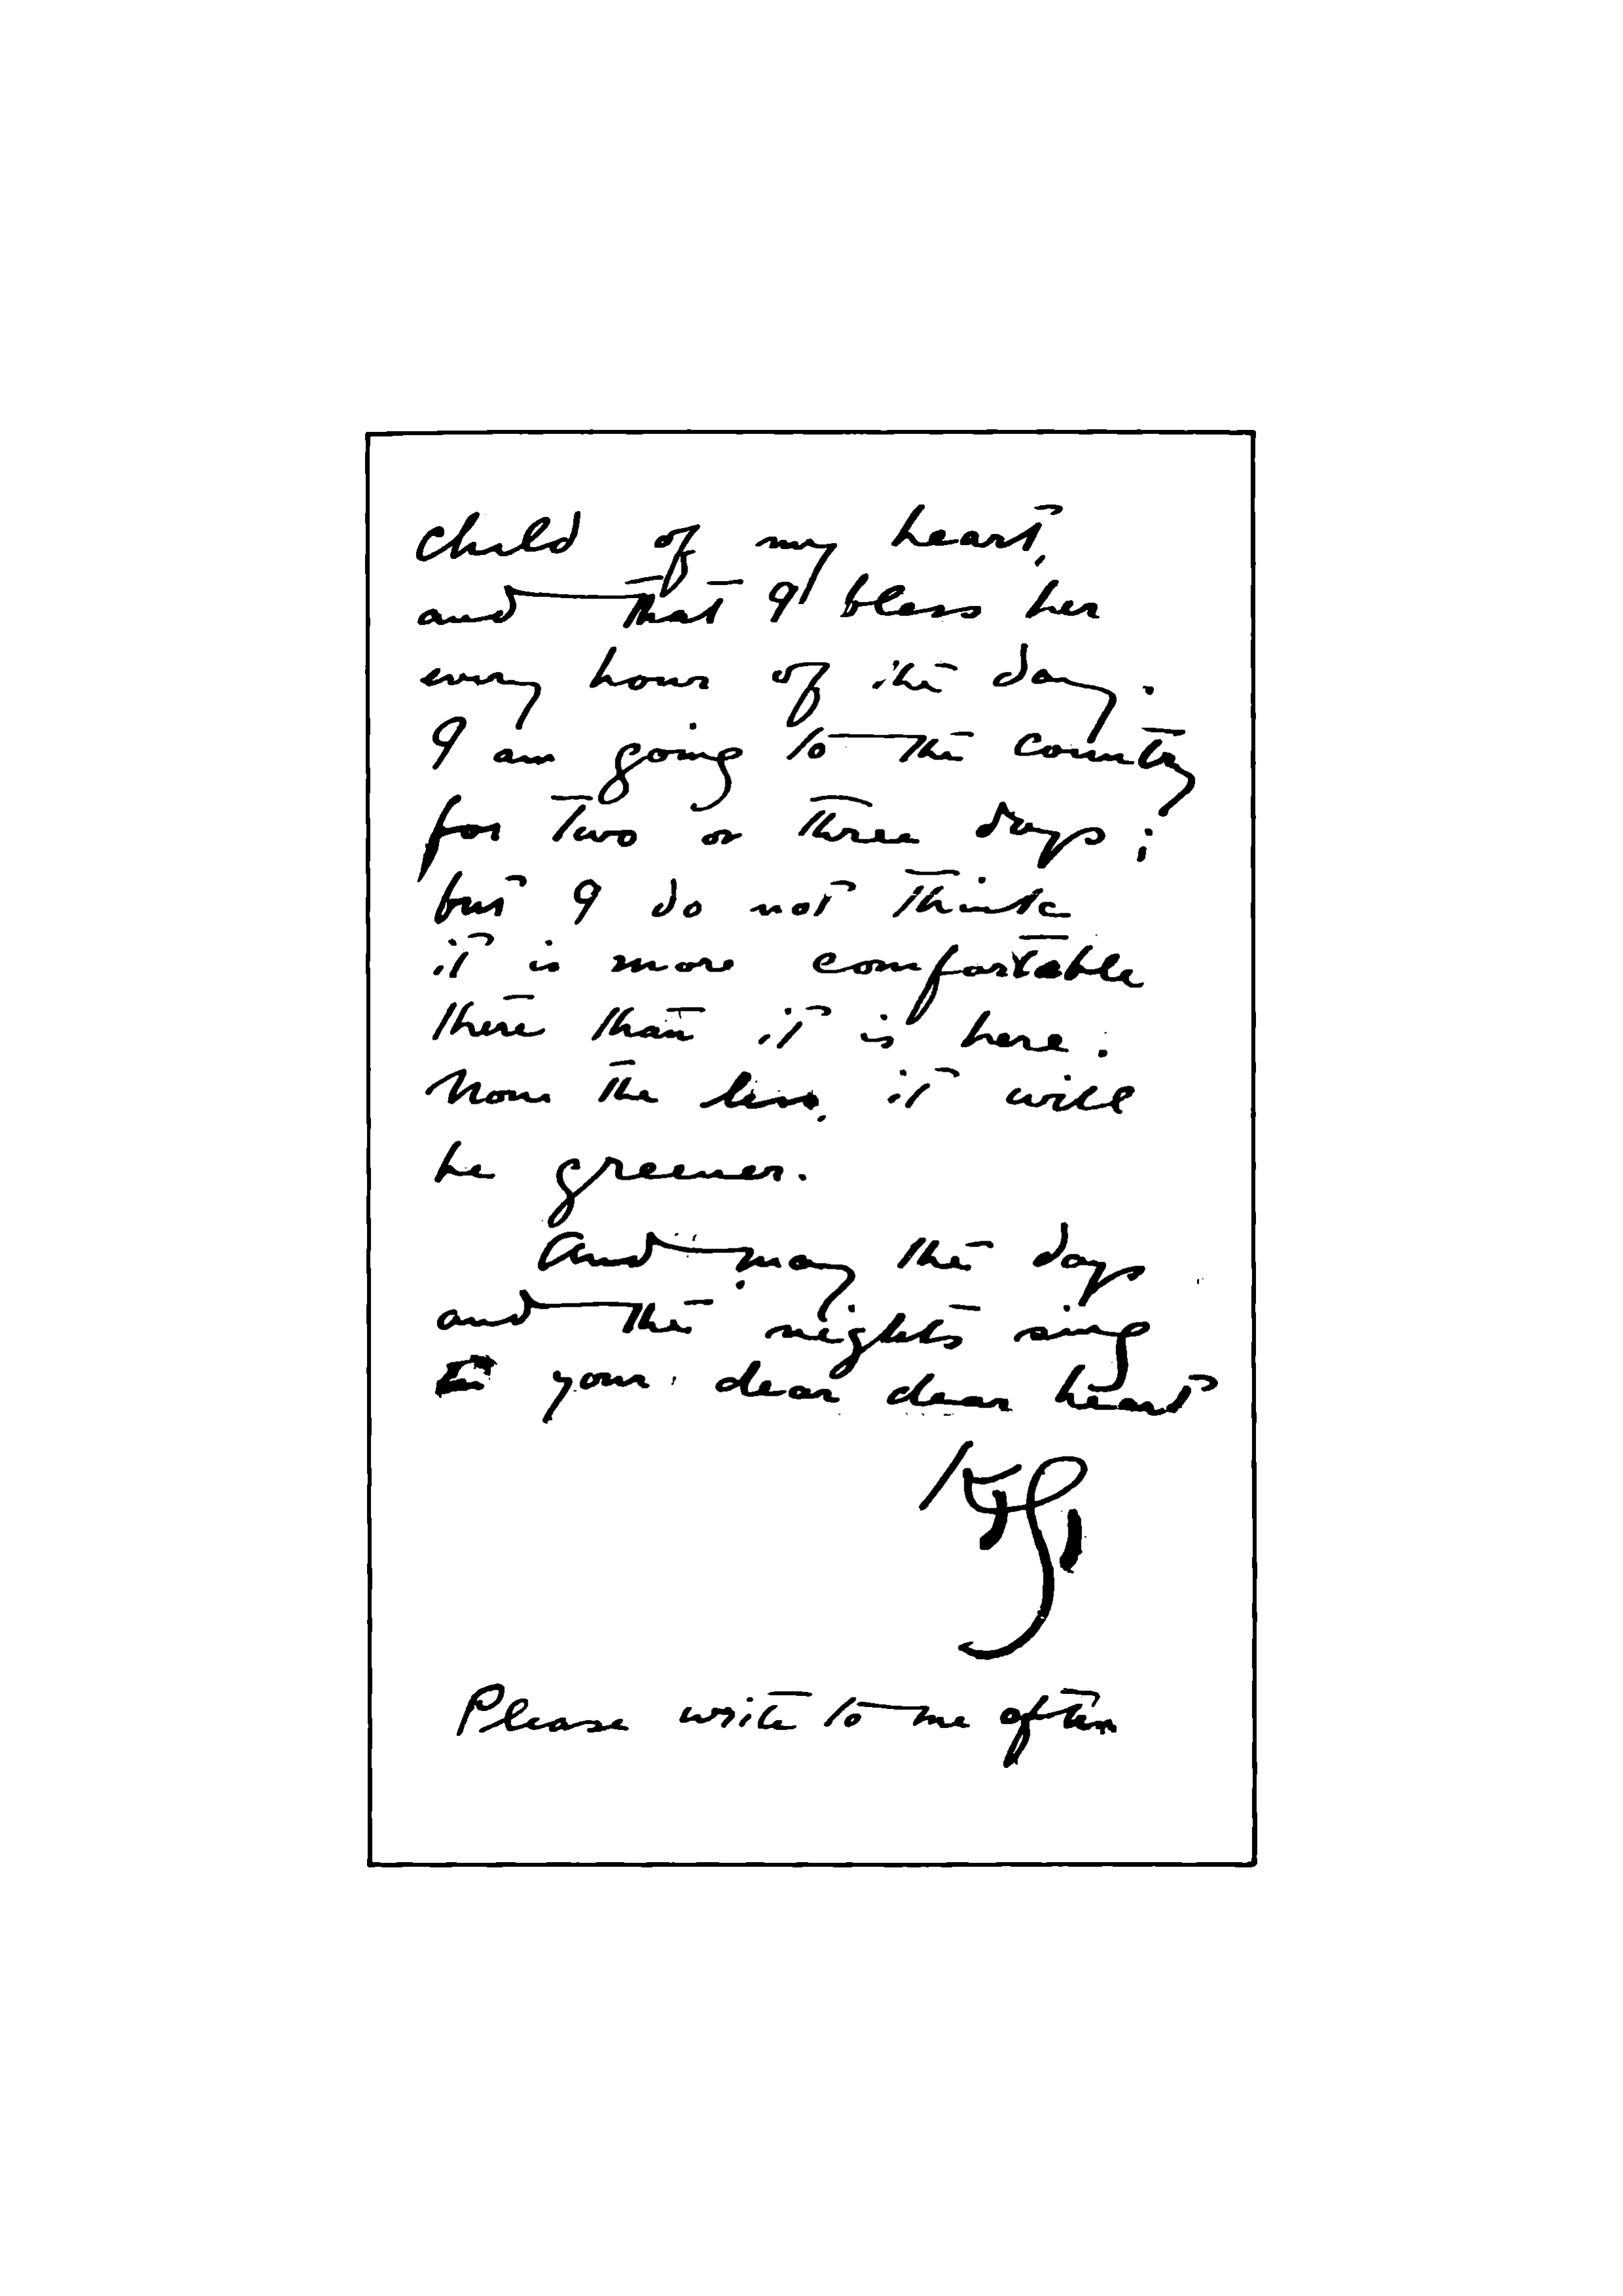 child of my heart,
and that I bless her
every hour of the day.
I am going to the country
for two or three days;
but I do not think
it is more comfortable
there than it is here.
None the less, it will
be greener.
And may the days
and the nights sing
in your dear dear heart
Please write to me often